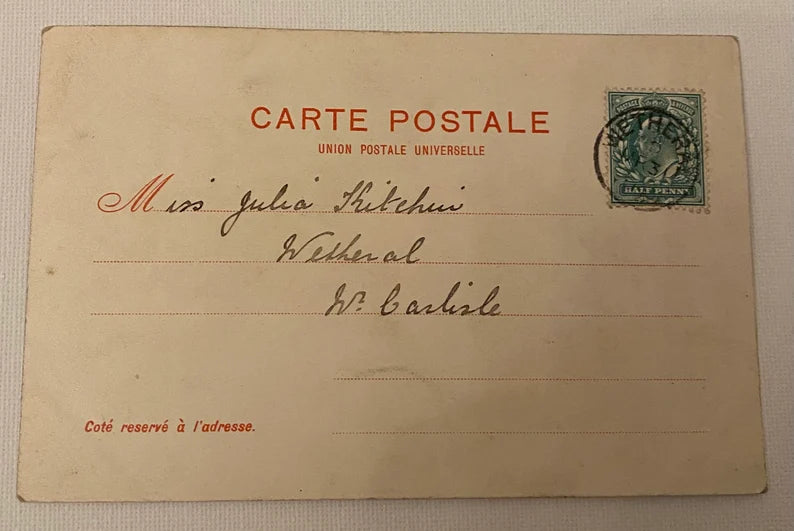 CARTE POSTALE
UNION POSTALE UNIVERSELLE
POSTAGE & REVENUE
WETHERAL
HALF PENNY
Miss Julia Kitchin
Wetheral
Nr. Carlisle
Coté reservé à l'adresse.